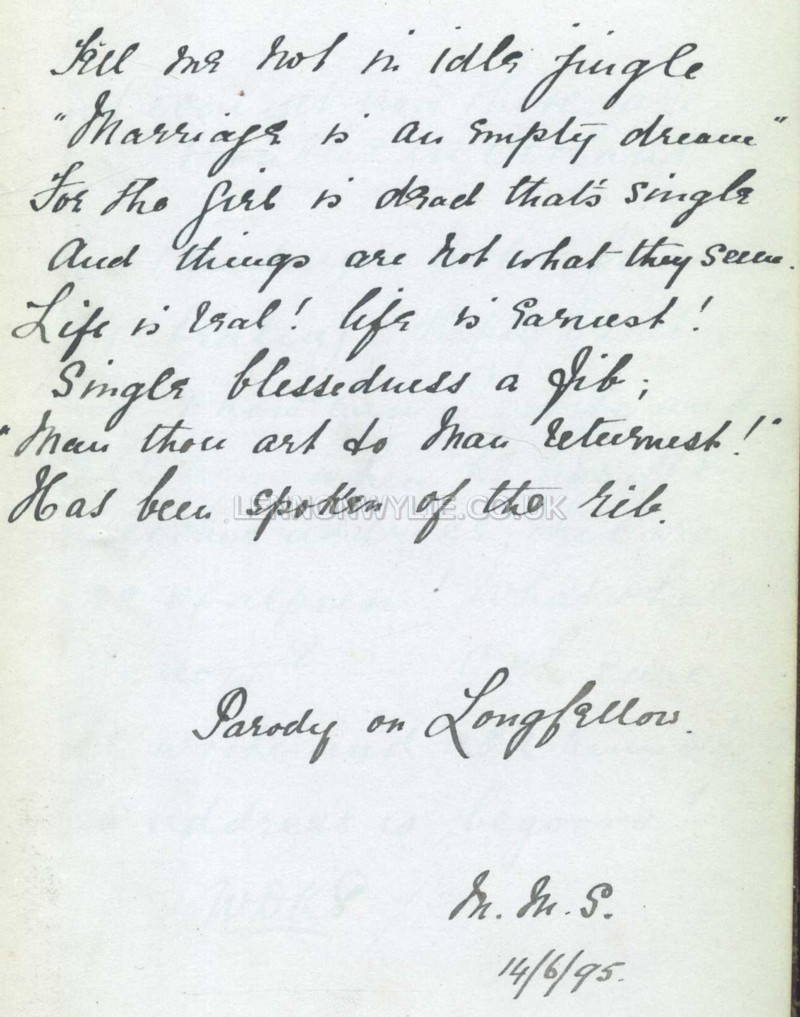 Tell me not in idle jingle
"Marriage is an empty dream"
For the girl is dead that's single
And things are not what they seem.
Life is real! life is earnest!
Single blessedness a fib;
"Man thou art to Man returnest!"
Has been spoken of the rib.
LENNONWYLIE.CO.UK
Parody on Longfellow.
M. M. S.
14/6/95.